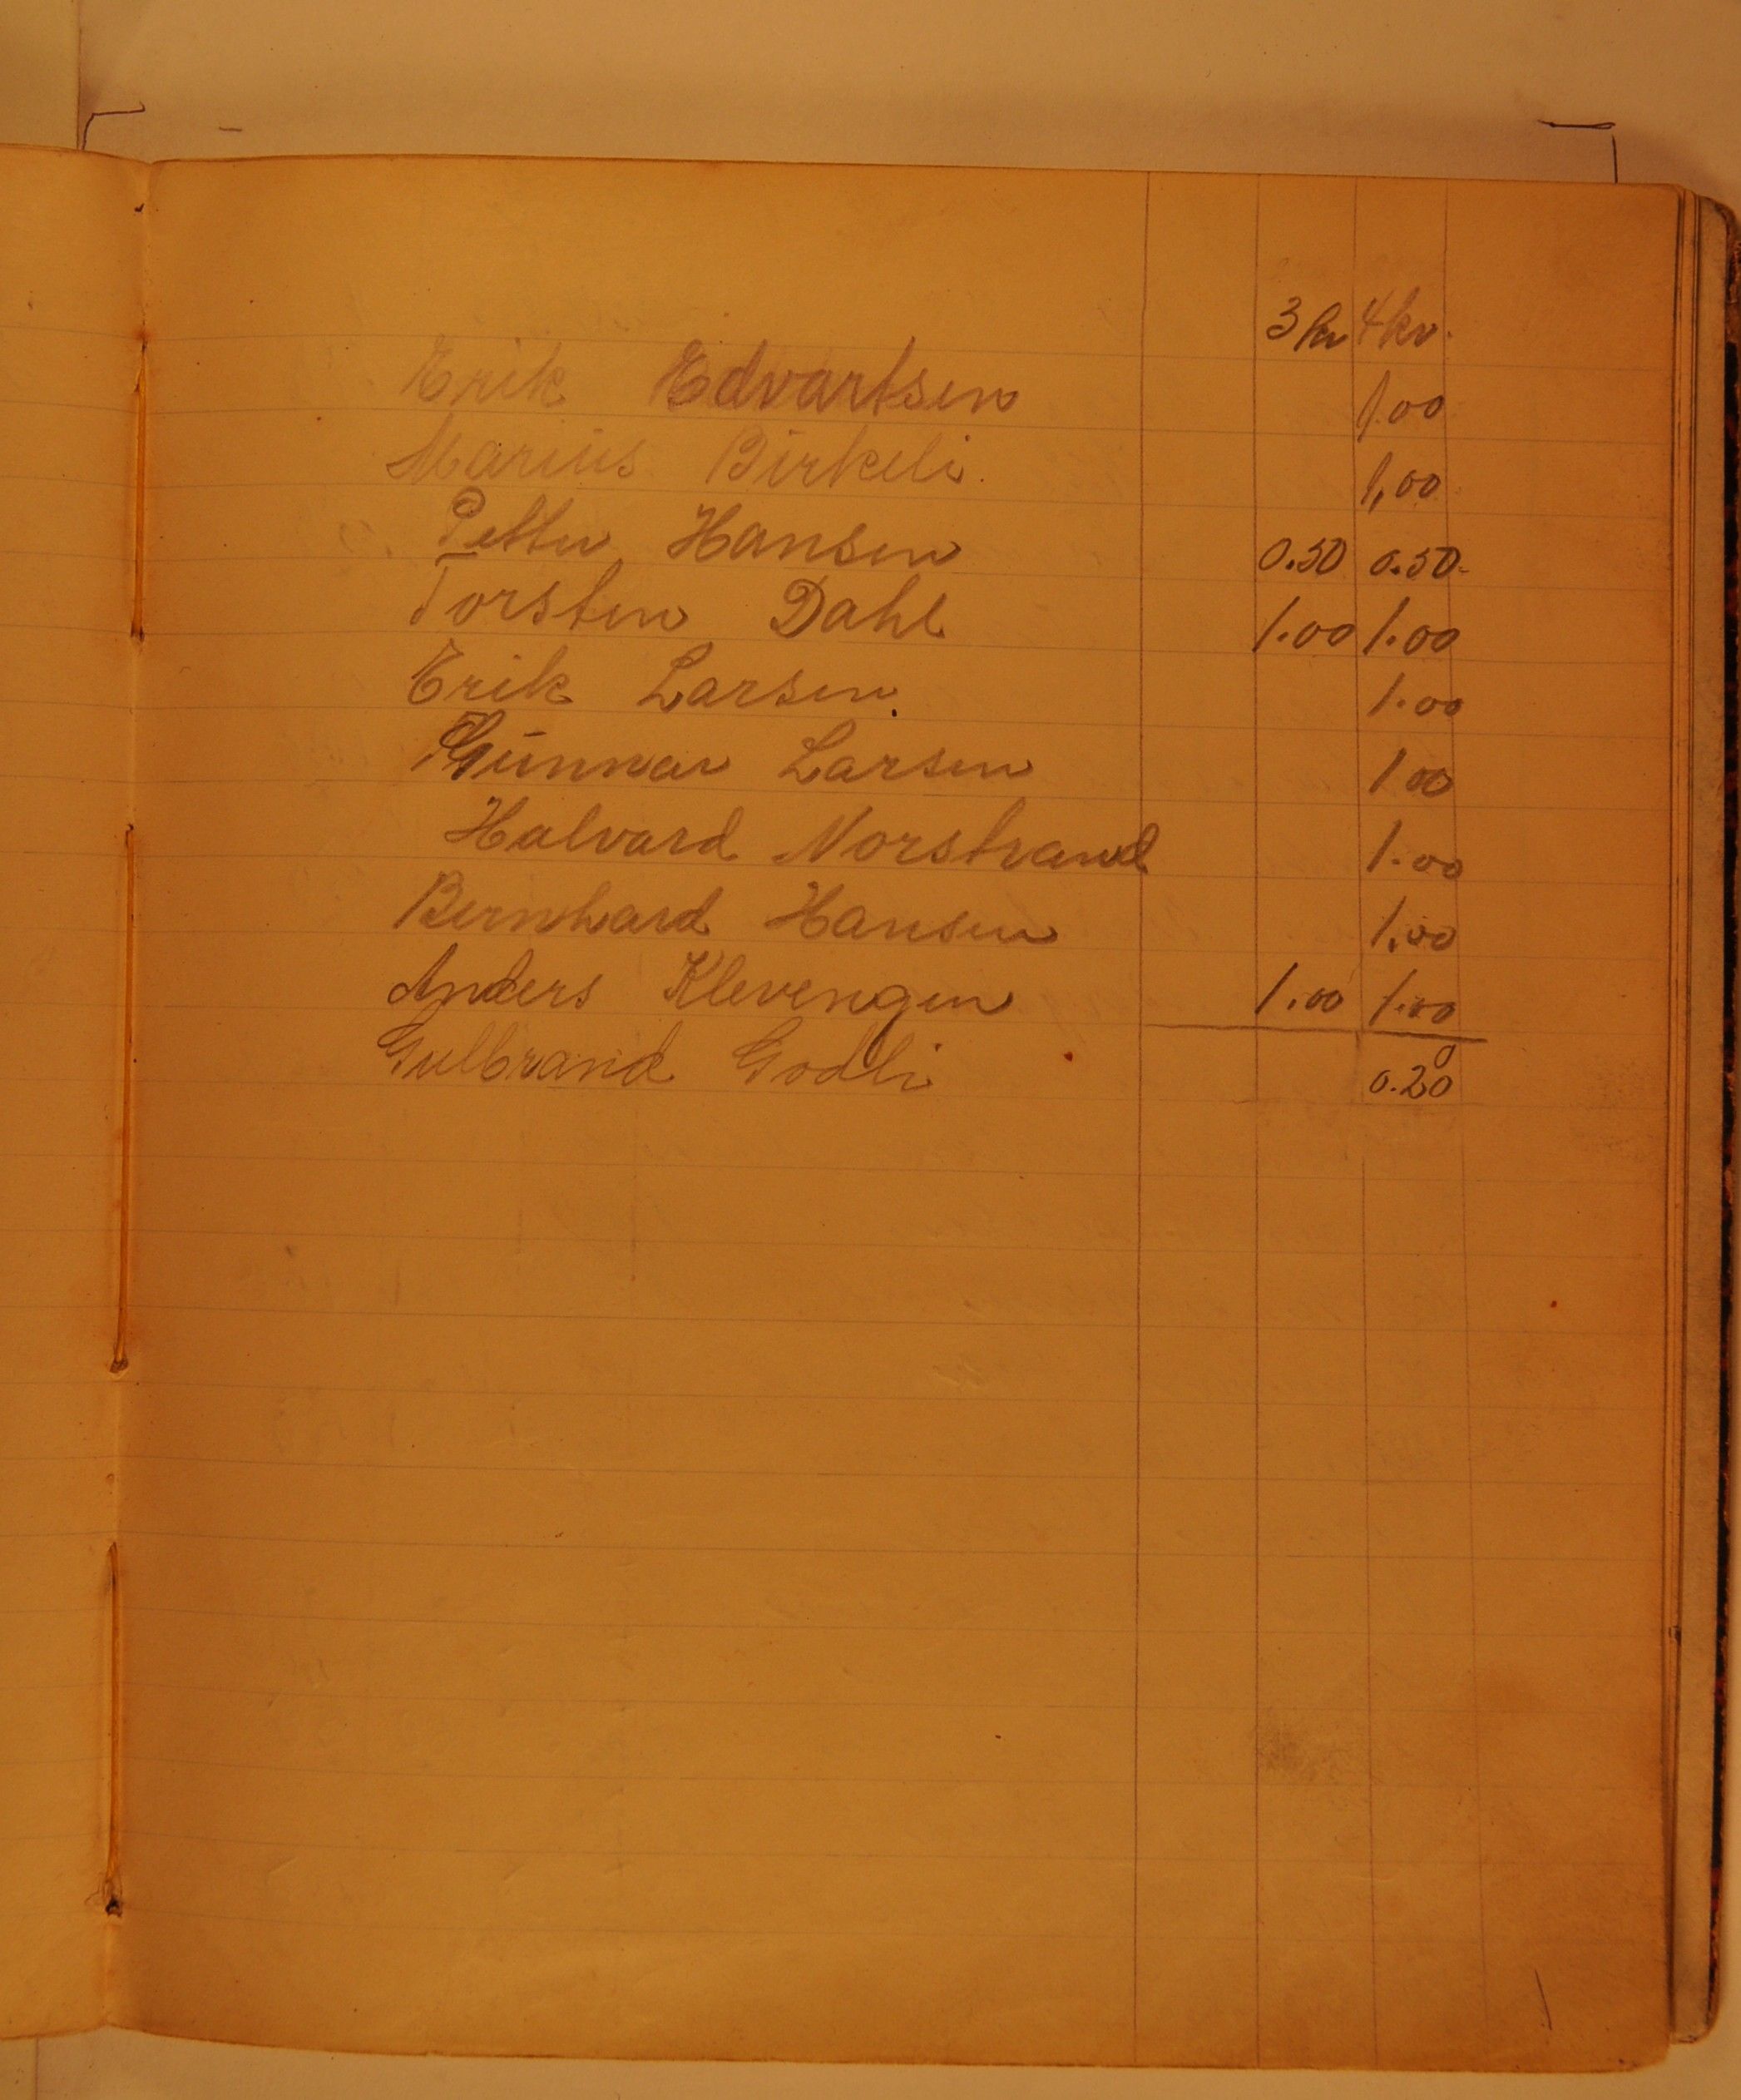 3 kv 4 kv.
Erik Edvartsen 1.00
Marius Birkeli. 1,00
Petter Hansen 0.50 0.50
Torsten Dahl 1.00 1.00
Erik Larsen 1.00
Gunnar Larsen 1 00
Halvard Norstrand 1.00
Bernhard Hansen 1,00
Anders Klevengen 1.00 1.00
Gulbrand Godli 0.20